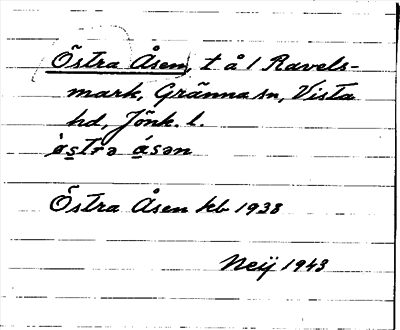 Östra Åsen, t å 1 Ravels-
mark, Gränna sn, Vista
hd, Jönk. l.
östrə åsən
Östra Åsen kb 1938
Neij 1943